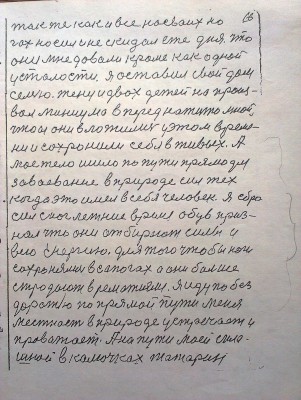 66
так те как и все на своих но
гах носил и не скидал с те дня. Что
они мне довали кроме как одной
усталости. Я оставил свой дом
семю. жену и двох детей на произ-
вол минуло вперед на
чтоби они вложилис у этом време-
ни и сохронили себя в живых. А
мое тело ишло по пути прямо для
завоевание в природе сил тех
когда это имел в себя человек. Я сбро
сил многлетние время обув приз-
нал что они отбирают силы и
всю енергию. для того чтобы ноги
сохроняли в сапогах а они больше
страдают в ревматизми. Я иду по без
дорожю по прямой пути меня
местност в природе устречает и
проважает. А на пути моей
шной в камочках татарин